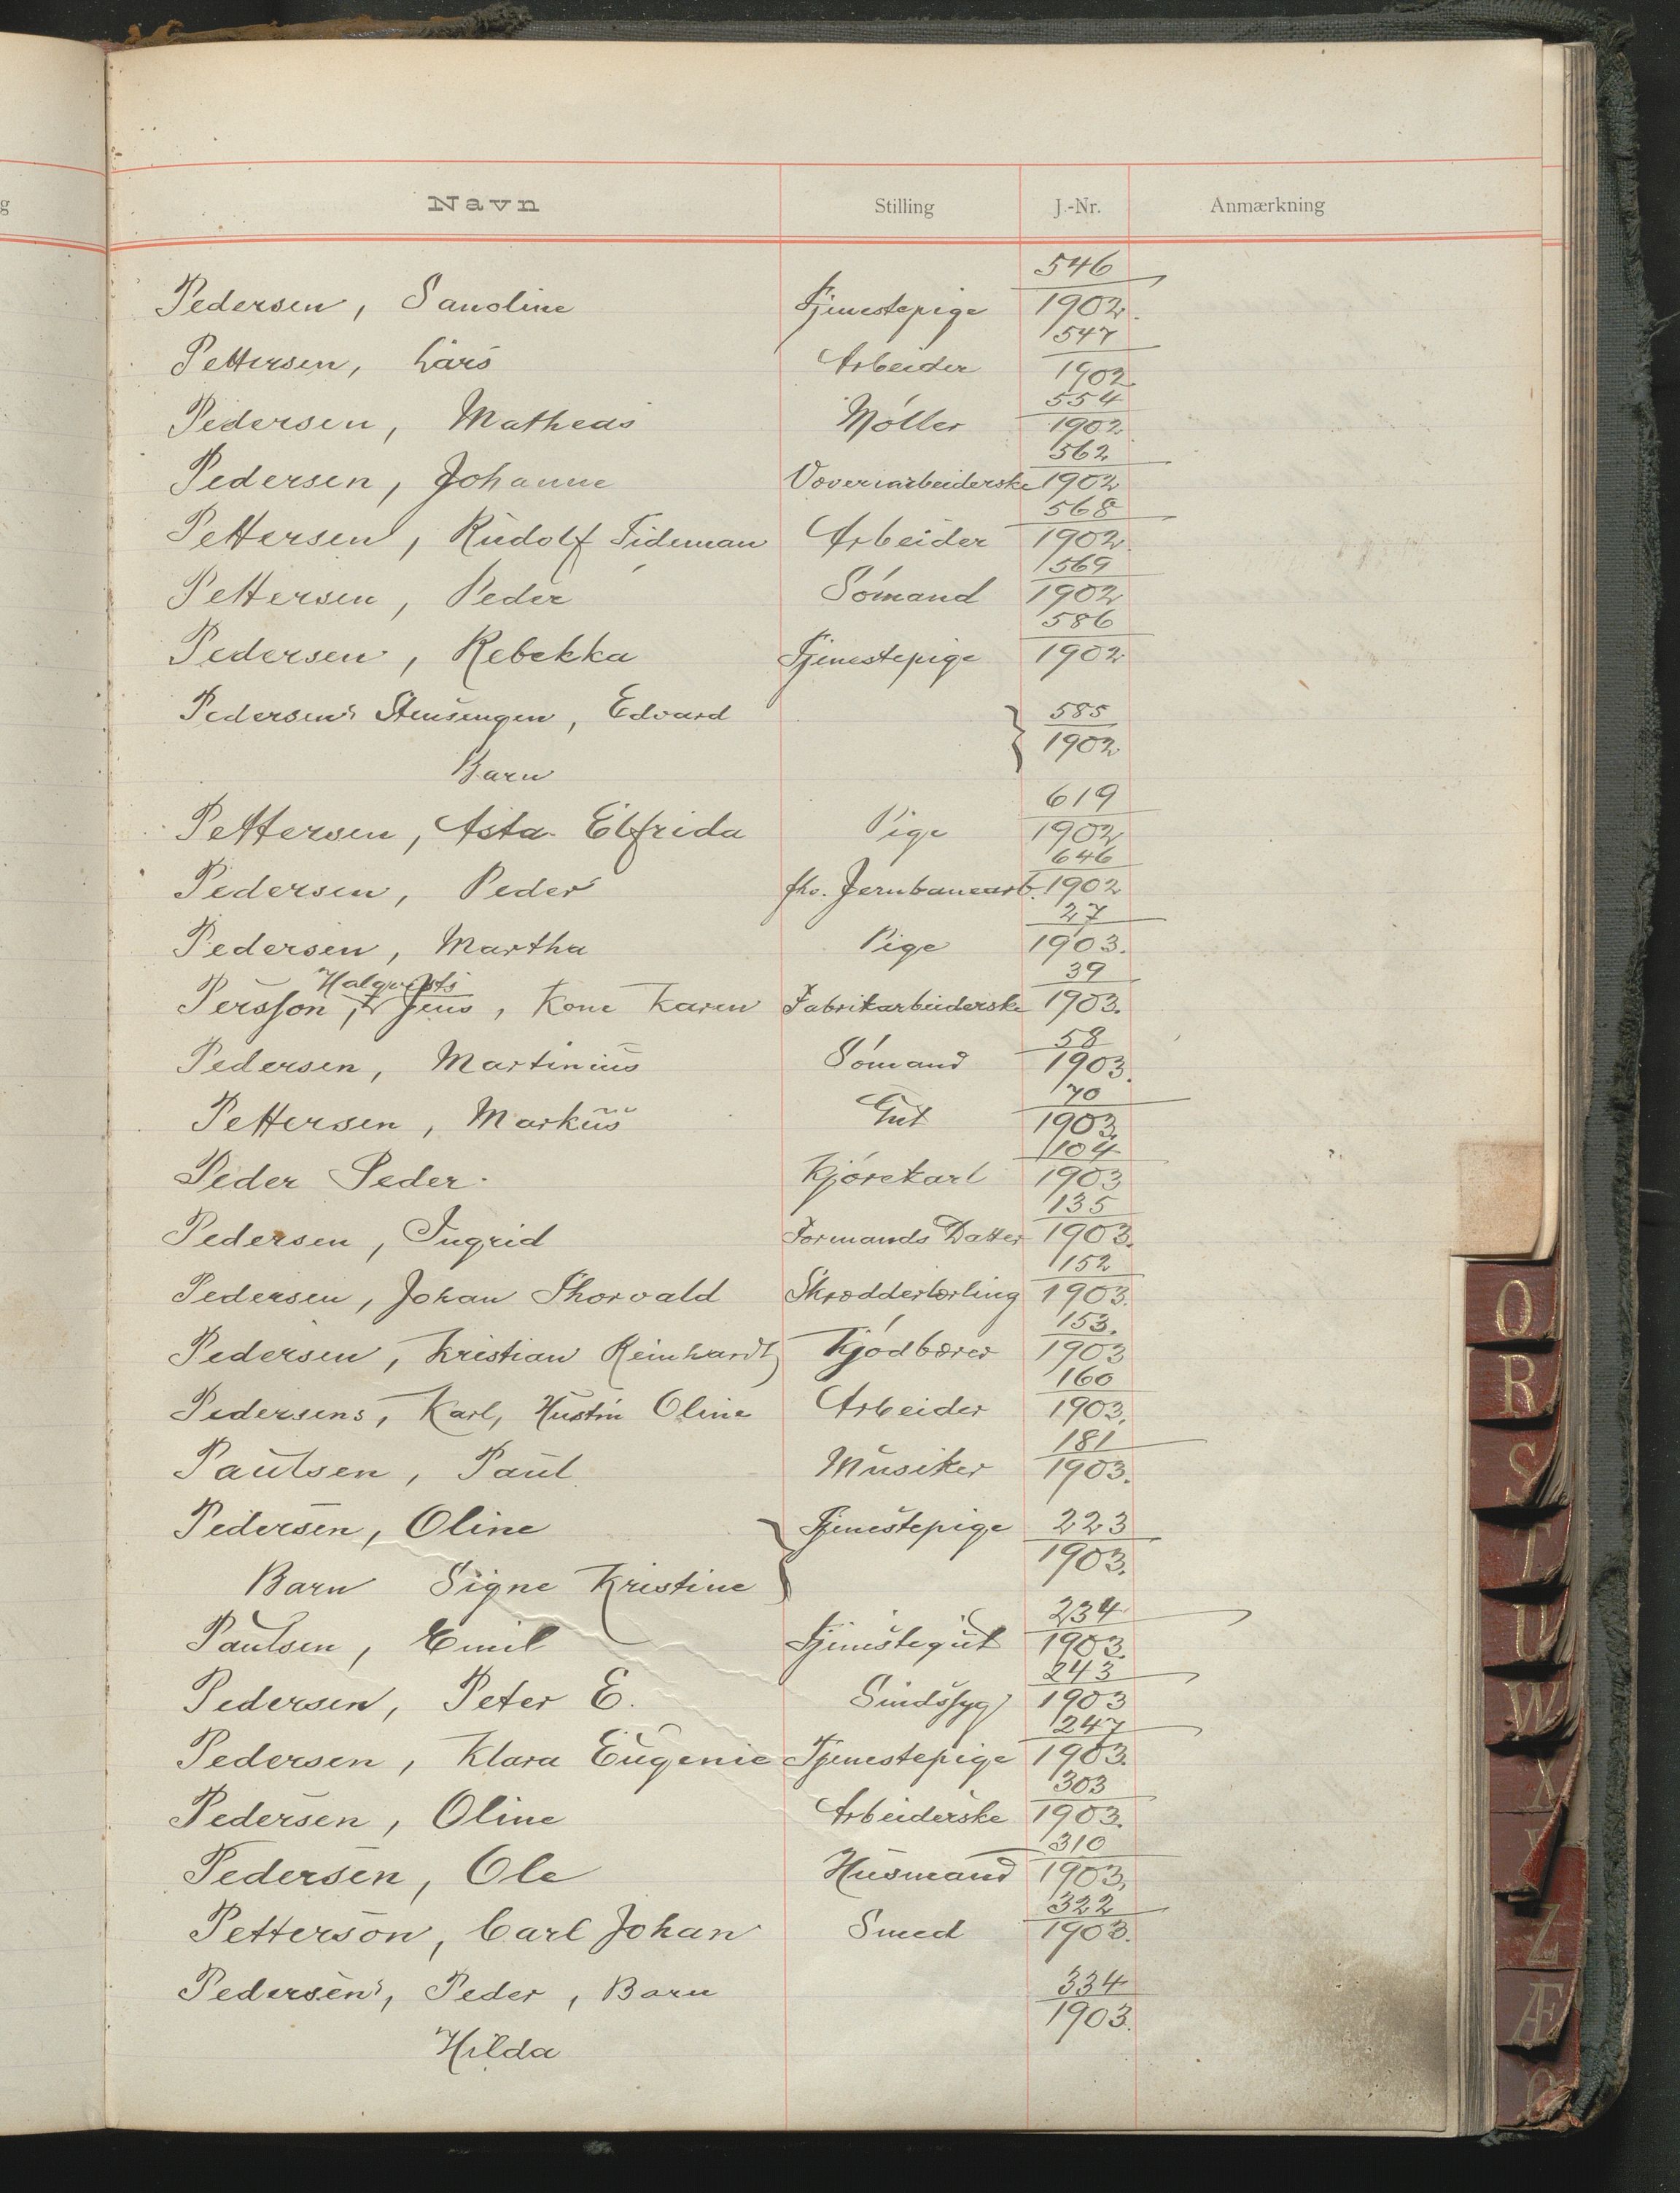 Navn Stilling J.-Nr. Anmærkning
Pedersen, Sanoline Tjenestepige 546/1902.
Pettersen, Lars Arbeider 547/1902.
Pedersen, Matheas Møller 554/1902
Pedersen, Johanne Væveriarbeiderske 562/1902
Pettersen, Rudolf Tideman Arbeider 568/1902.
Pettersen, Peder Sømand 569/1902
Pedersen, Rebekka Tjenestepige 586/1902
Pedersens Stensengen, Edvard 585/1902
Barn
Pettersen, Asta Elfrida Pige 619/1902
Pedersen, Peder fhv. Jernbanearb. 646/1902
Pedersen, Martha Pige 27/1903.
Halqvists
Persson, Jens, Kone Karen Fabrikarbeiderske 39/1903.
Pedersen, Martinius Sømand 58/1903.
Pettersen, Markus Gut 70/1903.
Peder Peder. Kjørekarl 104/1903
Pedersen, Ingrid Formands Datter 135/1903.
Pedersen, Johan Thorvald Skrædderlærling 152/1903.
Pedersen, Kristian Reinhardt Kjødbærer 153./1903
Pedersens, Karl, Hustru Oline Arbeider 160/1903.
Paulsen, Paul Musiker 181/1903.
Pedersen, Oline Tjenestepige 223/1903.
Barn Signe Kristine
Paulsen, Emil Tjenestegut 234/1903.
Pedersen, Peter E. Sindssyg 243/1903
Pedersen, Klara Eugenie Tjenestepige 247/1903.
Pedersen, Oline Arbeiderske 303/1903.
Pedersen, Ole Husmand 310/1903.
Petterson, Carl Johan Smed 322/1903.
Pedersens, Peder, Barn 334/1903.
Hilda
Q
R
S
T
U
W
X
Y
Z
Æ
Ø